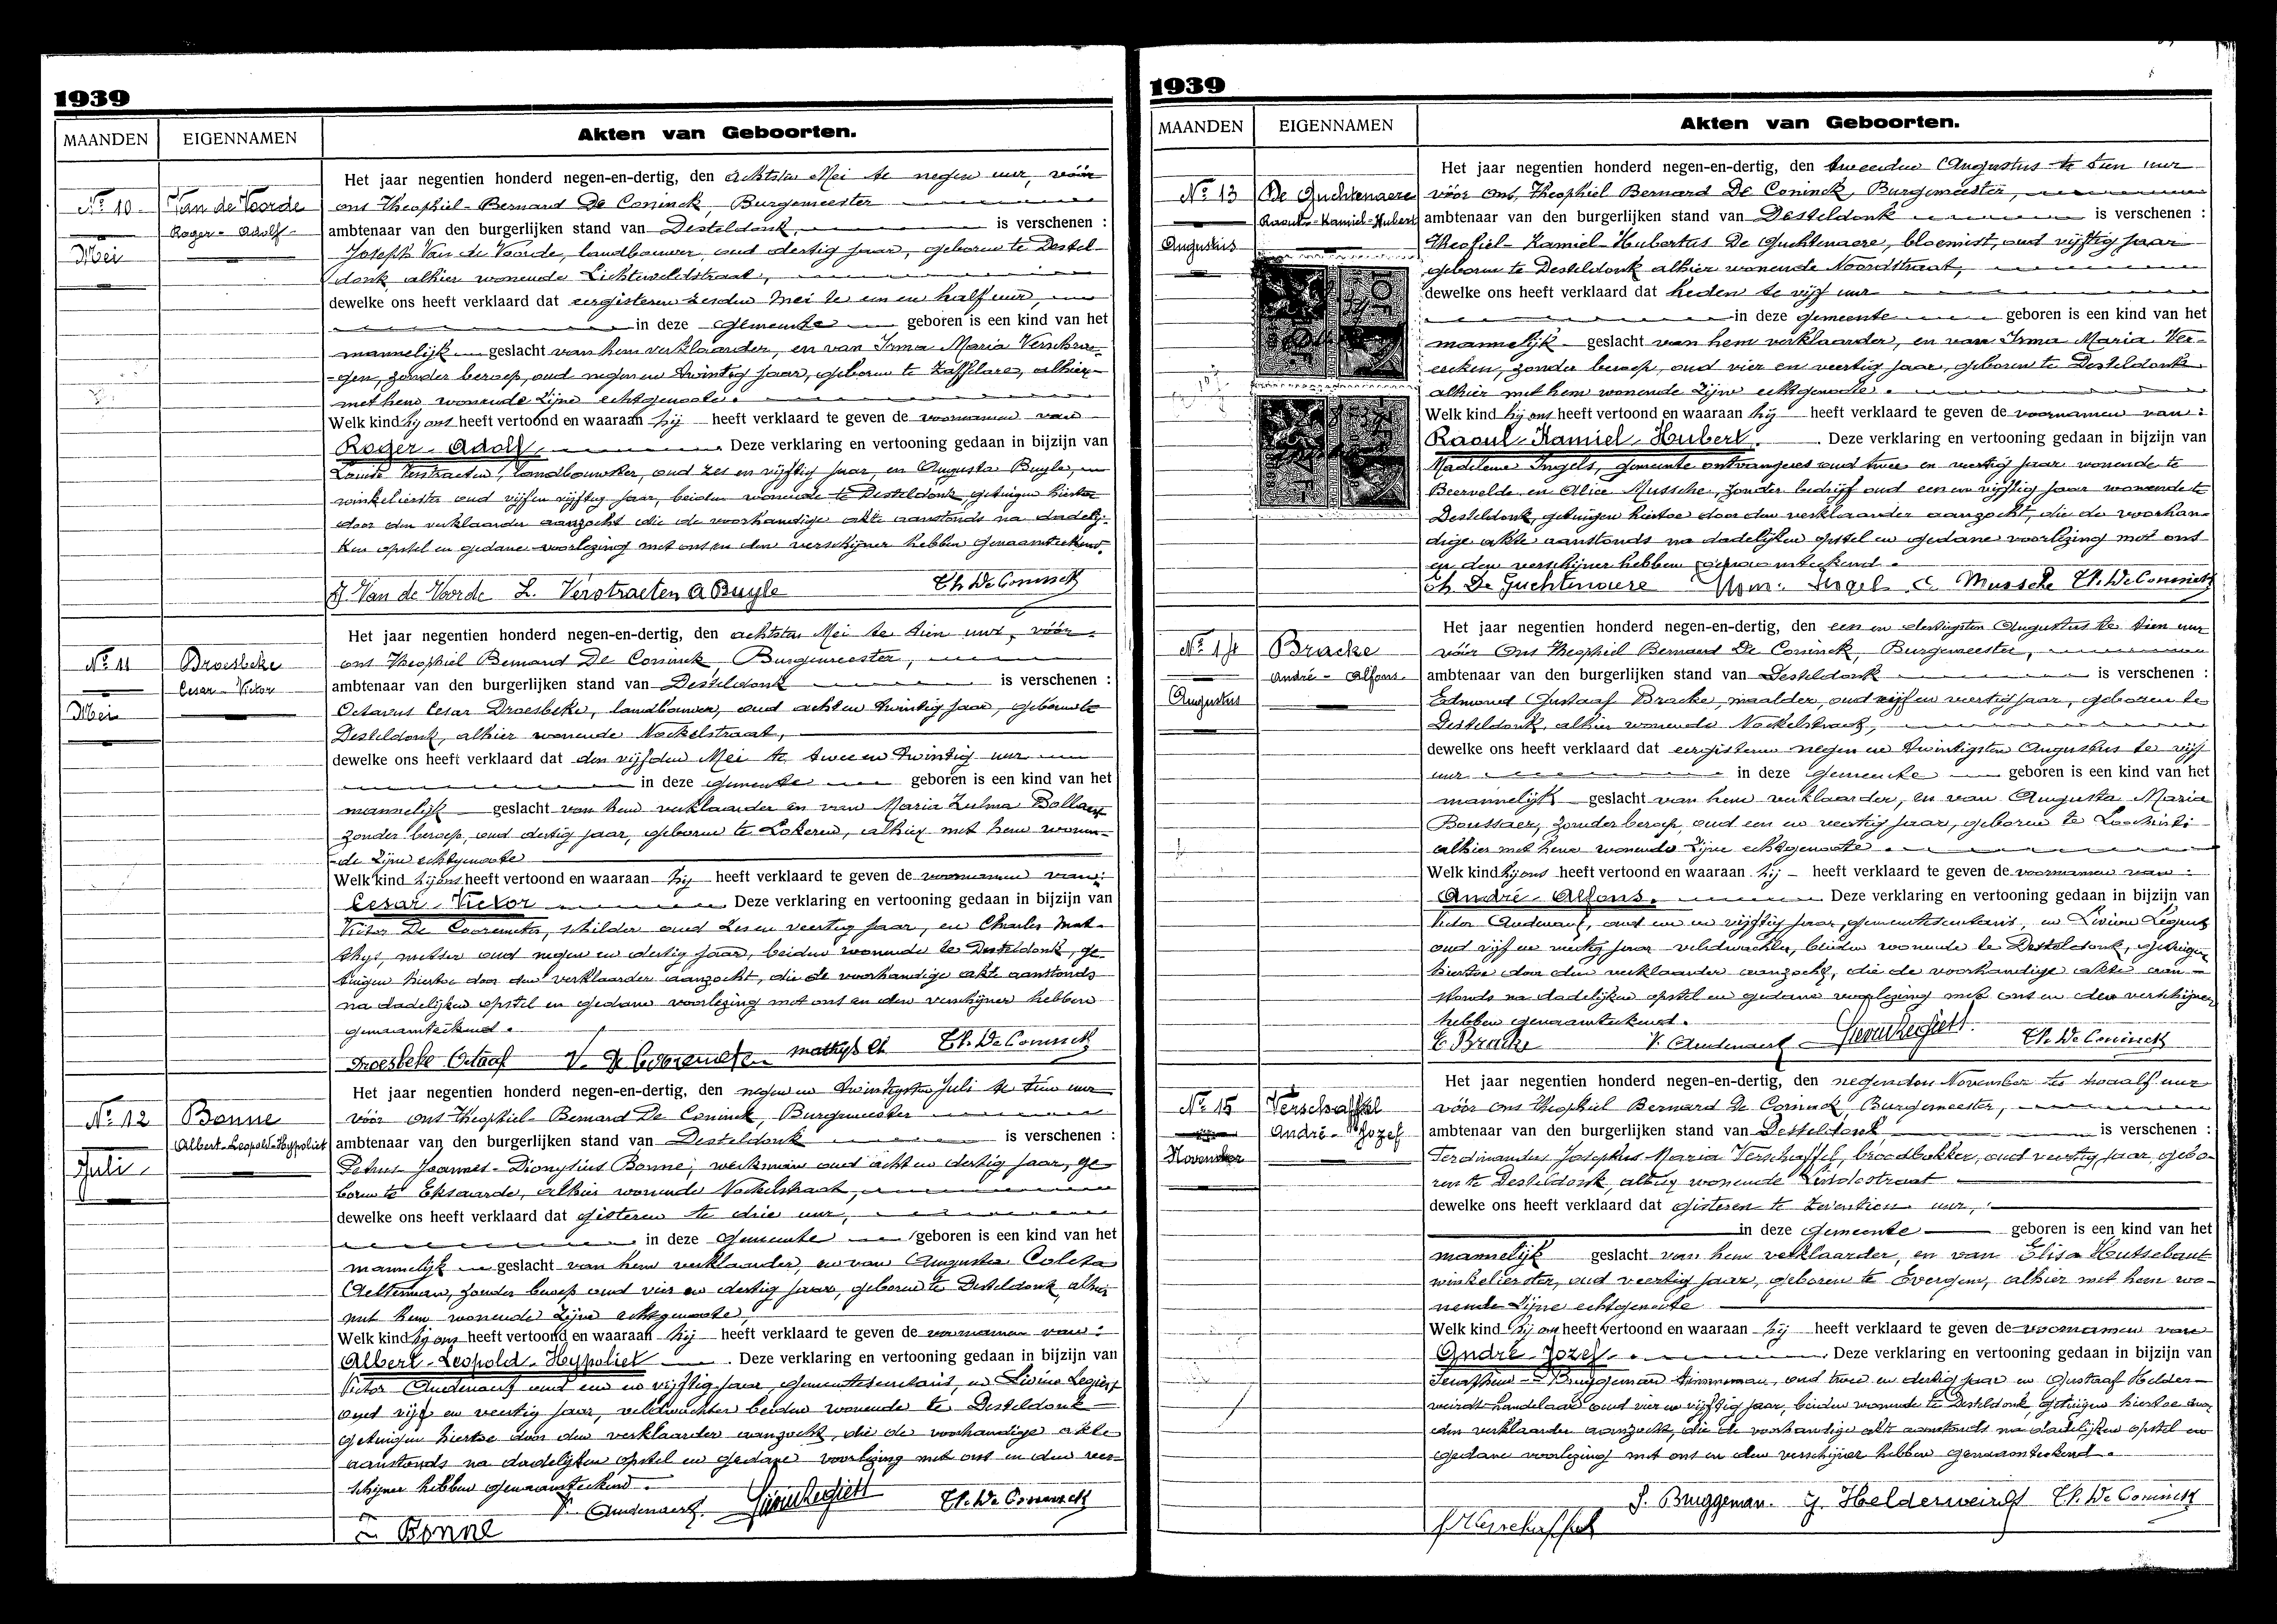 1939
MAANDEN
EIGENNAMEN
Akten van Geboorten.
Nº 10
Van de Voorde
Roger - Adolf
Mei
Het jaar negentien honderd negen-en-dertig, den achtsten Mei te negen uur, vóór
ons Theophiel-Bernard De Coninck, Burgemeester
ambtenaar van den burgerlijken stand van Desteldonk, is verschenen :
Joseph Van de Voorde, landbouwer, oud dertig jaar, geboren te Destel-
donk, alhier wonende Lichtelveldstraat,
dewelke ons heeft verklaard dat eergisteren zesden Mei te een en half uur,
in deze gemeente geboren is een kind van het
mannelijk geslacht van hem verklaarder, en van Irma Maria
-gen, zonder beroep, oud negen en twintig jaar, geboren te Zaffelare, alhier
met hem wonende zijne echtgenoote.
Welk kind hij ons heeft vertoond en waaraan hij heeft verklaard te geven de voornamen van
Roger - Adolf, Deze verklaring en vertooning gedaan in bijzijn van
Verstraeten, landbouwster, oud zes en vijftig jaar, en Augusta Buyle,
winkelierster oud vijf en vijftig jaar, beiden wonende te Desteldonk, getuigen hiertoe
door den verklaarder aanzocht die de voorhandige akte aanstonds na dadelij-
ken opstel en gedane voorlezing met ons en den verschijner hebben genaamteekend.
J. Van de Voorde L. Verstraeten A Buyle Th. De Coninck
Nº 11
Droesbeke
Cesar - Victor
Mei
Het jaar negentien honderd negen-en-dertig, den achtsten Mei te tien uur, vóór
ons Theophiel Bernard De Coninck, Burgemeester,
ambtenaar van den burgerlijken stand van Desteldonk is verschenen :
Octavus Cesar Droesbeke, landbouwer, oud acht en twintig jaar, geboren te
Desteldonk, alhier wonende Nockelstraat,
dewelke ons heeft verklaard dat den vijfden Mei te twee en twintig uur
in deze gemeente geboren is een kind van het
mannelijk geslacht van hem verklaarder en van Maria Zulma Bollaert
zonder beroep, oud dertig jaar, geboren te Lokeren, alhier met hem wonen-
de zijne echtgenoote
Welk kind hij ons heeft vertoond en waaraan hij heeft verklaard te geven de voornamen van:
Cesar - Victor Deze verklaring en vertooning gedaan in bijzijn van
Victor De Cooremeter, schilder oud zes en veertig jaar, en Charles Mat-
thys, metser oud negen en dertig jaar, beiden wonende te Desteldonk, ge-
tuigen hiertoe door den verklaarder aanzocht, die de voorhandige akte aanstonds
na dadelijken opstel en gedane voorlezing met ons en den verschijner hebben
genaamteekend.
Droesbeke Octaaf V. De Cooremeter mathys Ch Th. De Coninck
Nº 12
Bonne
Albert-Leopold-Hypoliet
Juli
Het jaar negentien honderd negen-en-dertig, den negen en twintigsten Juli te tien uur
vóór ons Theophiel-Bernard De Coninck, Burgemeester
ambtenaar van den burgerlijken stand van Desteldonk is verschenen :
Petrus-Joannes-Dionysius Bonne, werkman oud acht en dertig jaar, ge-
boren te Eksaarde, alhier wonende Nockelstraat,
dewelke ons heeft verklaard dat gisteren te drie uur,
in deze gemeente geboren is een kind van het
mannelijk geslacht van hem verklaarder, en van Augusta Coleta
Aelterman, zonder beroep oud vier en dertig jaar, geboren te Desteldonk, alhier
met hem wonende zijne echtgenoote,
Welk kind hij ons heeft vertoond en waaraan hij heeft verklaard te geven de voornamen van:
Albert-Leopold-Hypoliet. Deze verklaring en vertooning gedaan in bijzijn van
Victor Audenaert oud een en vijftig jaar, gemeentesecretaris, en Livinus Legiest
oud vijf en veertig jaar, veldwachter beiden wonende te Desteldonk
getuigen hiertoe door den verklaarder aanzocht, die de voorhandige akte
aanstonds na dadelijken opstel en gedane voorlezing met ons en den ver-
schijner hebben genaamteekend.
V. Audenaert. Th. De Coninck
Bonne
1939
MAANDEN
EIGENNAMEN
Akten van Geboorten.
Nº 13
De Guchtenaere
Raoul-Kamiel-Hubert
Augustus
Het jaar negentien honderd negen-en-dertig, den tweeden Augustus te tien uur
vóór Ons, Theophiel Bernard De Coninck, Burgemeester,
ambtenaar van den burgerlijken stand van Desteldonk is verschenen :
Theofiel-Kamiel-Hubertus De Guchtenaere, bloemist, oud vijftig jaar
geboren te Desteldonk alhier wonende Noordstraat,
dewelke ons heeft verklaard dat heden te vijf uur
in deze gemeente geboren is een kind van het
mannelijk geslacht van hem verklaarder, en van Irma Maria Ver-
eecken, zonder beroep, oud vier en veertig jaar, geboren te Desteldonk
alhier met hem wonende zijne echtgenoote.
Welk kind hij ons heeft vertoond en waaraan hij heeft verklaard te geven de voornamen van:
Raoul-Kamiel-Hubert. Deze verklaring en vertooning gedaan in bijzijn van
Madeleine Ingels, gemeente ontvangeres oud twee en veertig jaar wonende te
Beervelde en Alice Mussche, zonder bedrijf oud een en vijftig jaar wonende te
Desteldonk, getuigen hiertoe door den verklaarder aanzocht, die de voorhan-
dige akte aanstonds na dadelijken opstel en gedane voorlezing met ons
en den verschijner hebben genaamteekend.
Th De Guchtenaere Ingels A. Mussche Th. De Coninck
Nº 14
Bracke
André - Alfons.
Augustus
Het jaar negentien honderd negen-en-dertig, den een en dertigsten Augustus te tien uur
vóór Ons Theophiel Bernard De Coninck, Burgemeester,
ambtenaar van den burgerlijken stand van Desteldonk is verschenen :
Edmond Gustaaf Bracke, maalder, oud vijf en veertig jaar, geboren te
Desteldonk, alhier wonende Nockelstraat,
dewelke ons heeft verklaard dat eergisteren negen en twintigsten Augustus te vijf
uur in deze gemeente geboren is een kind van het
mannelijk geslacht van hem verklaarder, en van Augusta Maria
Boussaer, zonder beroep, oud een en veertig jaar, geboren te Loochristi
alhier met hem wonende zijne echtgenoote.
Welk kind hij ons heeft vertoond en waaraan hij heeft verklaard te geven de voornamen van:
André - Alfons. Deze verklaring en vertooning gedaan in bijzijn van
Victor Audenaert, oud een en vijftig jaar, gemeentesecretaris, en Livinus Legiest
oud vijf en veertig jaar veldwachter, beiden wonende te Desteldonk, getuigen
hiertoe door den verklaarder aanzocht, die de voorhandige akte aan-
stonds na dadelijken opstel en gedane voorlezing met ons en den verschijner
hebben genaamteekend.
E. Bracke V. Audenaert Th. De Coninck
Nº 15
Verschaffel
André - Jozef
November
Het jaar negentien honderd negen-en-dertig, den negenden November te twaalf uur
vóór ons Theophiel Bernard De Coninck, Burgemeester,
ambtenaar van den burgerlijken stand van Desteldonk, is verschenen :
Ferdinandus Josephus Maria Verschaffel, broodbakker, oud veertig jaar, gebo-
ren te Desteldonk, alhier wonende Lindestraat
dewelke ons heeft verklaard dat gisteren te zeventien uur,
in deze gemeente geboren is een kind van het
mannelijk geslacht van hem verklaarder, en van Elisa Hutsebaut
winkelierster, oud veertig jaar, geboren te Evergem, alhier met hem wo-
nende zijne echtgenoote
Welk kind hij ons heeft vertoond en waaraan hij heeft verklaard te geven de voornamen van
André - Jozef. Deze verklaring en vertooning gedaan in bijzijn van
Bruggeman timmerman, oud twee en dertig jaar en Gustaaf Helder-
weirdt handelaar oud vier en vijftig jaar, beiden wonende te Desteldonk, getuigen hiertoe door
den verklaarder aanzocht, die de voorhandige akte aanstonds na dadelijken opstel en
gedane voorlezing met ons en den verschijner hebben genaamteekend.
S. Bruggeman. G. Helderweirdt Th. De Coninck
F Verschaffel